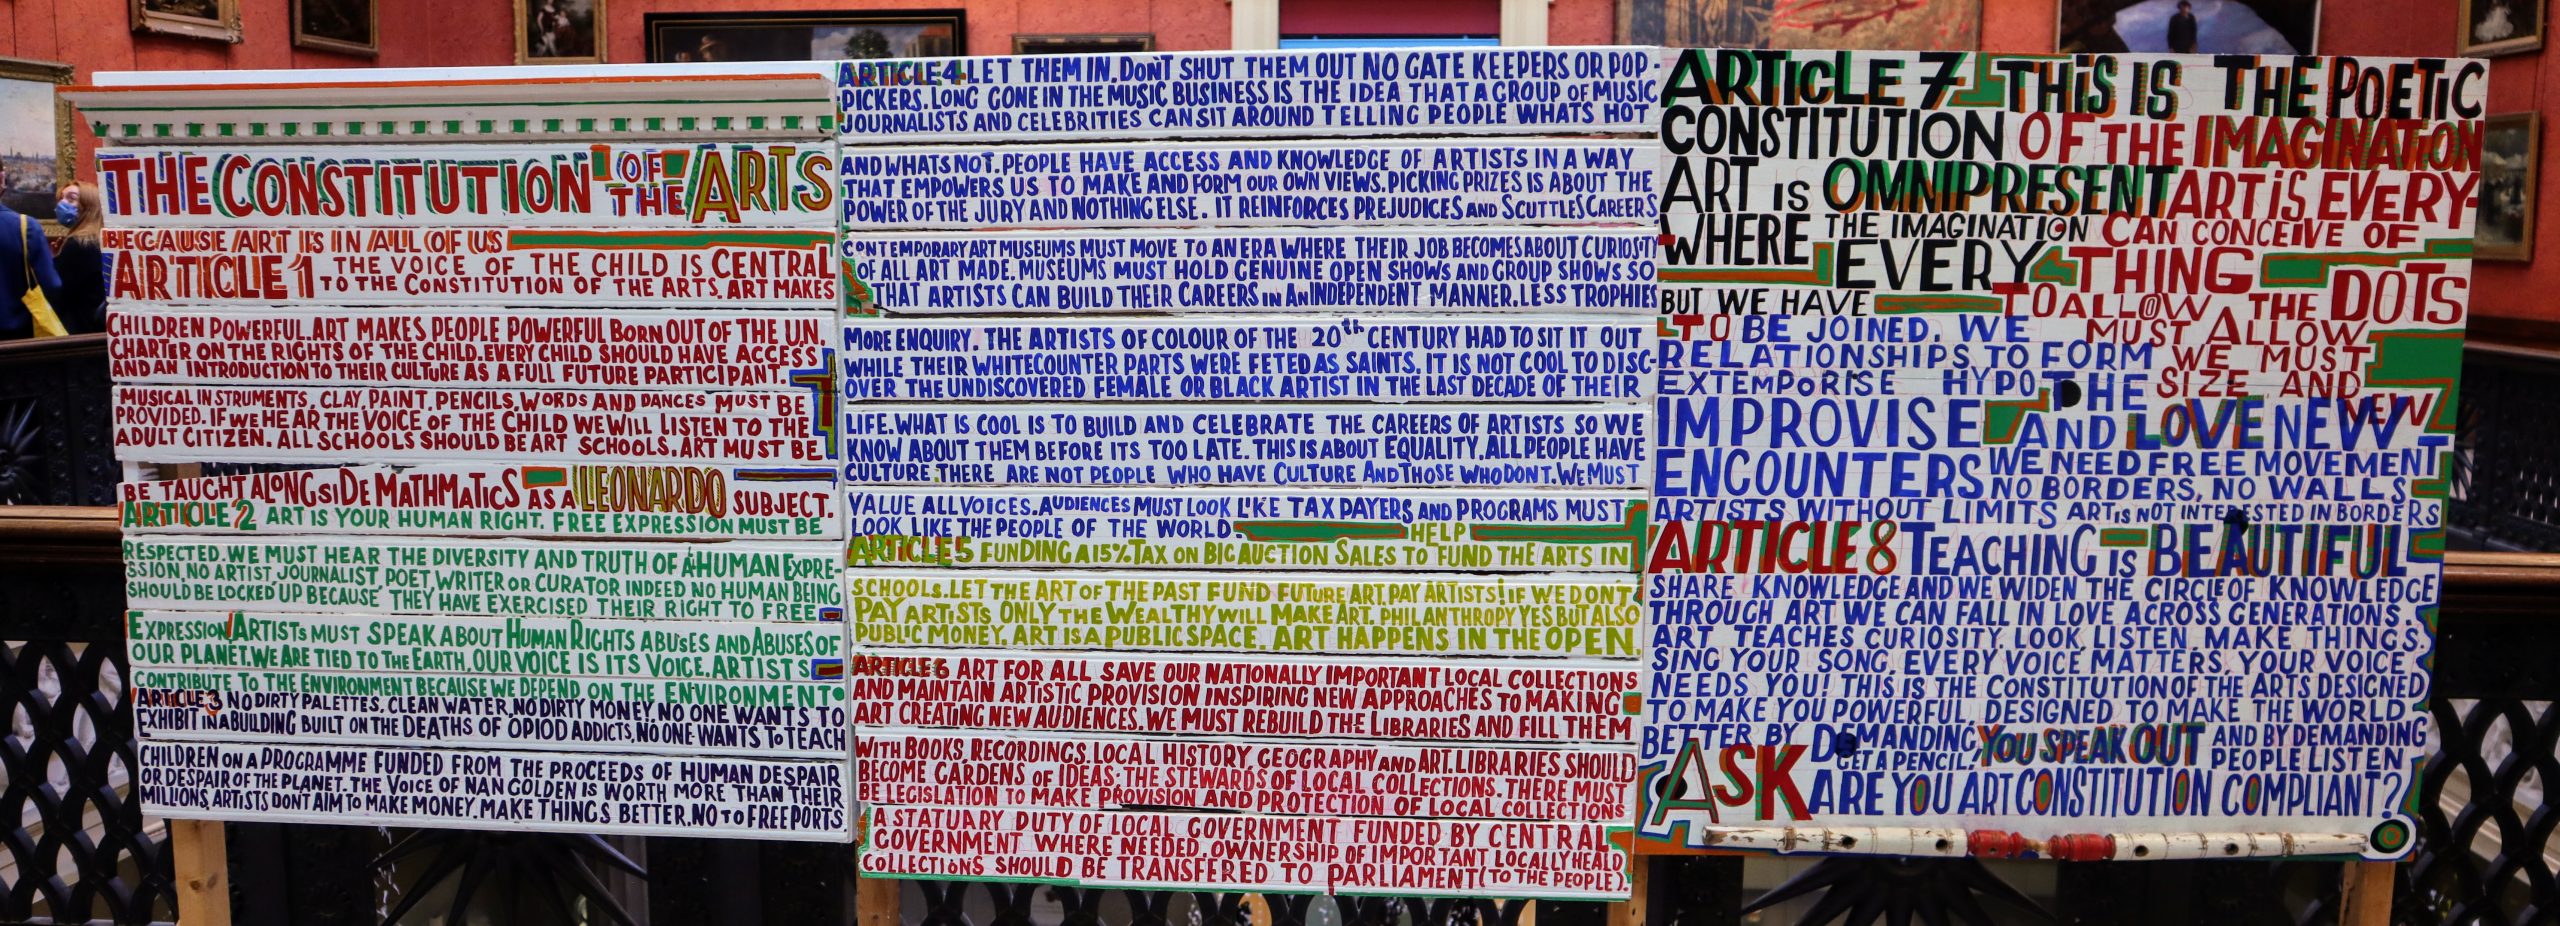 THE CONSTITUTION OF THE ARTS
BECAUSE ART IS IN ALL OF US
ARTICLE 1 THE VOICE OF THE CHILD IS CENTRAL
TO THE CONSTITUTION OF THE ARTS. ART MAKES
CHILDREN POWERFUL. ART MAKES PEOPLE POWERFUL BORN OUT OF THE U.N.
CHARTER ON THE RIGHTS OF THE CHILD. EVERY CHILD SHOULD HAVE ACCESS
AND AN INTRODUCTION TO THEIR CULTURE AS A FULL FUTURE PARTICIPANT.
MUSICAL INSTRUMENTS, CLAY, PAINT, PENCILS, WORDS AND DANCES MUST BE
PROVIDED. IF WE HEAR THE VOICE OF THE CHILD WE WILL LISTEN TO THE
ADULT CITIZEN. ALL SCHOOLS SHOULD BE ART SCHOOLS. ART MUST BE
BE TAUGHT ALONGSIDE MATHMATICS AS A LEONARDO SUBJECT.
ARTICLE 2 ART IS YOUR HUMAN RIGHT. FREE EXPRESSION MUST BE
RESPECTED. WE MUST HEAR THE DIVERSITY AND TRUTH OF A HUMAN EXPRE-
SSION, NO ARTIST, JOURNALIST, POET, WRITER OR CURATOR INDEED NO HUMAN BEING
SHOULD BE LOCKED UP BECAUSE THEY HAVE EXERCISED THEIR RIGHT TO FREE
EXPRESSION! ARTISTS MUST SPEAK ABOUT HUMAN RIGHTS ABUSES AND ABUSES OF
OUR PLANET. WE ARE TIED TO THE EARTH, OUR VOICE IS ITS VOICE. ARTISTS
CONTRIBUTE TO THE ENVIRONMENT BECAUSE WE DEPEND ON THE ENVIRONMENT
ARTICLE 3 NO DIRTY PALETTES. CLEAN WATER, NO DIRTY MONEY, NO ONE WANTS TO
EXHIBIT IN A BUILDING BUILT ON THE DEATHS OF OPIOD ADDICTS, NO ONE WANTS TO TEACH
CHILDREN ON A PROGRAMME FUNDED FROM THE PROCEEDS OF HUMAN DESPAIR
OR DESPAIR OF THE PLANET. THE VOICE OF NAN GOLDEN IS WORTH MORE THAN THEIR
MILLIONS, ARTISTS DONT AIM TO MAKE MONEY. MAKE THINGS BETTER. NO TO FREEPORTS.
ARTICLE 4 LET THEM IN. DON'T SHUT THEM OUT NO GATE KEEPERS OR POP-
PICKERS. LONG GONE IN THE MUSIC BUSINESS IS THE IDEA THAT A GROUP OF MUSIC
JOURNALISTS AND CELEBRITIES CAN SIT AROUND TELLING PEOPLE WHATS HOT
AND WHATS NOT. PEOPLE HAVE ACCESS AND KNOWLEDGE OF ARTISTS IN A WAY
THAT EMPOWERS US TO MAKE AND FORM OUR OWN VIEWS. PICKING PRIZES IS ABOUT THE
POWER OF THE JURY AND NOTHING ELSE. IT REINFORCES PREJUDICES AND SCUTTLES CAREERS
CONTEMPORARY ART MUSEUMS MUST MOVE TO AN ERA WHERE THEIR JOB BECOMES ABOUT CURIOSITY
OF ALL ART MADE. MUSEUMS MUST HOLD GENUINE OPEN SHOWS AND GROUP SHOWS SO
THAT ARTISTS CAN BUILD THEIR CAREERS IN AN INDEPENDENT MANNER. LESS TROPHIES
MORE ENQUIRY. THE ARTISTS OF COLOUR OF THE 20th CENTURY HAD TO SIT IT OUT
WHILE THEIR WHITE COUNTER PARTS WERE FETED AS SAINTS. IT IS NOT COOL TO DISC-
OVER THE UNDISCOVERED FEMALE OR BLACK ARTIST IN THE LAST DECADE OF THEIR
LIFE. WHAT IS COOL IS TO BUILD AND CELEBRATE THE CAREERS OF ARTISTS SO WE
KNOW ABOUT THEM BEFORE ITS TOO LATE. THIS IS ABOUT EQUALITY. ALL PEOPLE HAVE
CULTURE. THERE ARE NOT PEOPLE WHO HAVE CULTURE AND THOSE WHO DONT. WE MUST
VALUE ALL VOICES. AUDIENCES MUST LOOK LIKE TAX PAYERS AND PROGRAMS MUST
LOOK LIKE THE PEOPLE OF THE WORLD. HELP
ARTICLE 5 FUNDING A 15% TAX ON BIG AUCTION SALES TO FUND THE ARTS IN
SCHOOLS. LET THE ART OF THE PAST FUND FUTURE ART. PAY ARTISTS! IF WE DON'T
PAY ARTISTS ONLY THE WEALTHY WILL MAKE ART. PHILANTHROPY YES BUT ALSO
PUBLIC MONEY. ART IS A PUBLIC SPACE. ART HAPPENS IN THE OPEN.
ARTICLE 6 ART FOR ALL SAVE OUR NATIONALLY IMPORTANT LOCAL COLLECTIONS
AND MAINTAIN ARTISTIC PROVISION INSPIRING NEW APPROACHES TO MAKING
ART CREATING NEW AUDIENCES. WE MUST REBUILD THE LIBRARIES AND FILL THEM
WITH BOOKS, RECORDINGS, LOCAL HISTORY, GEOGRAPHY AND ART. LIBRARIES SHOULD
BECOME GARDENS OF IDEAS: THE STEWARDS OF LOCAL COLLECTIONS. THERE MUST
BE LEGISLATION TO MAKE PROVISION AND PROTECTION OF LOCAL COLLECTIONS
A STATUARY DUTY OF LOCAL GOVERNMENT FUNDED BY CENTRAL
GOVERNMENT WHERE NEEDED. OWNERSHIP OF IMPORTANT LOCALLY HEALD
COLLECTIONS SHOULD BE TRANSFERED TO PARLIAMENT (TO THE PEOPLE).
ARTICLE 7 THIS IS THE POETIC
CONSTITUTION OF THE IMAGINATION
ART IS OMNIPRESENT ART IS EVERY-
WHERE THE IMAGINATION CAN CONCEIVE OF
EVERY THING
BUT WE HAVE TO ALLOW THE DOTS
TO BE JOINED. WE MUST ALLOW
RELATIONSHIPS TO FORM WE MUST
EXTEMPORISE HYPOTHE SIZE AND
IMPROVISE AND LOVE NEW NEW
ENCOUNTERS WE NEED FREE MOVEMENT
NO BORDERS, NO WALLS
ARTISTS WITHOUT LIMITS ART IS NOT INTERESTED IN BORDERS
ARTICLE 8 TEACHING IS BEAUTIFUL
SHARE KNOWLEDGE AND WE WIDEN THE CIRCLE OF KNOWLEDGE
THROUGH ART WE CAN FALL IN LOVE ACROSS GENERATIONS.
ART TEACHES CURIOSITY. LOOK, LISTEN, MAKE THINGS.
SING YOUR SONG. EVERY VOICE MATTERS. YOUR VOICE
NEEDS YOU! THIS IS THE CONSTITUTION OF THE ARTS DESIGNED
TO MAKE YOU POWERFUL, DESIGNED TO MAKE THE WORLD
BETTER BY DEMANDING YOU SPEAK OUT AND BY DEMANDING
GET A PENCIL! PEOPLE LISTEN
ASK ARE YOU ART CONSTITUTION COMPLIANT?